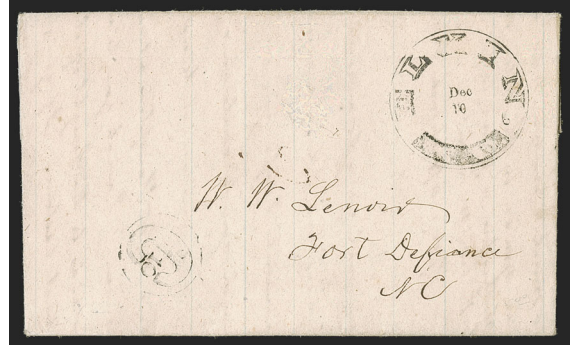 ELKIN
Dec
10
W. W. Lenoir
Fort Defiance
NC